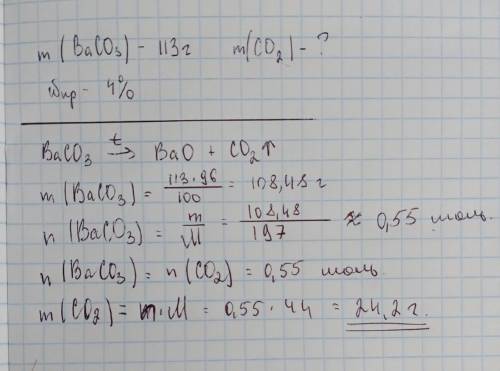 m (BaCO₃) - 113 г m(CO₂) - ?
ωпр - 4%
BaCO₃ →t BaO + CO₂↑
m (BaCO₃) = 113·96/100 = 108,48 г
n (BaCO₃) = m/M = 108,48/197 ≈ 0,55 моль.
n (BaCO₃) = n (CO₂) = 0,55 моль
m (CO₂) = n·M = 0,55·44 = 24,2 г.